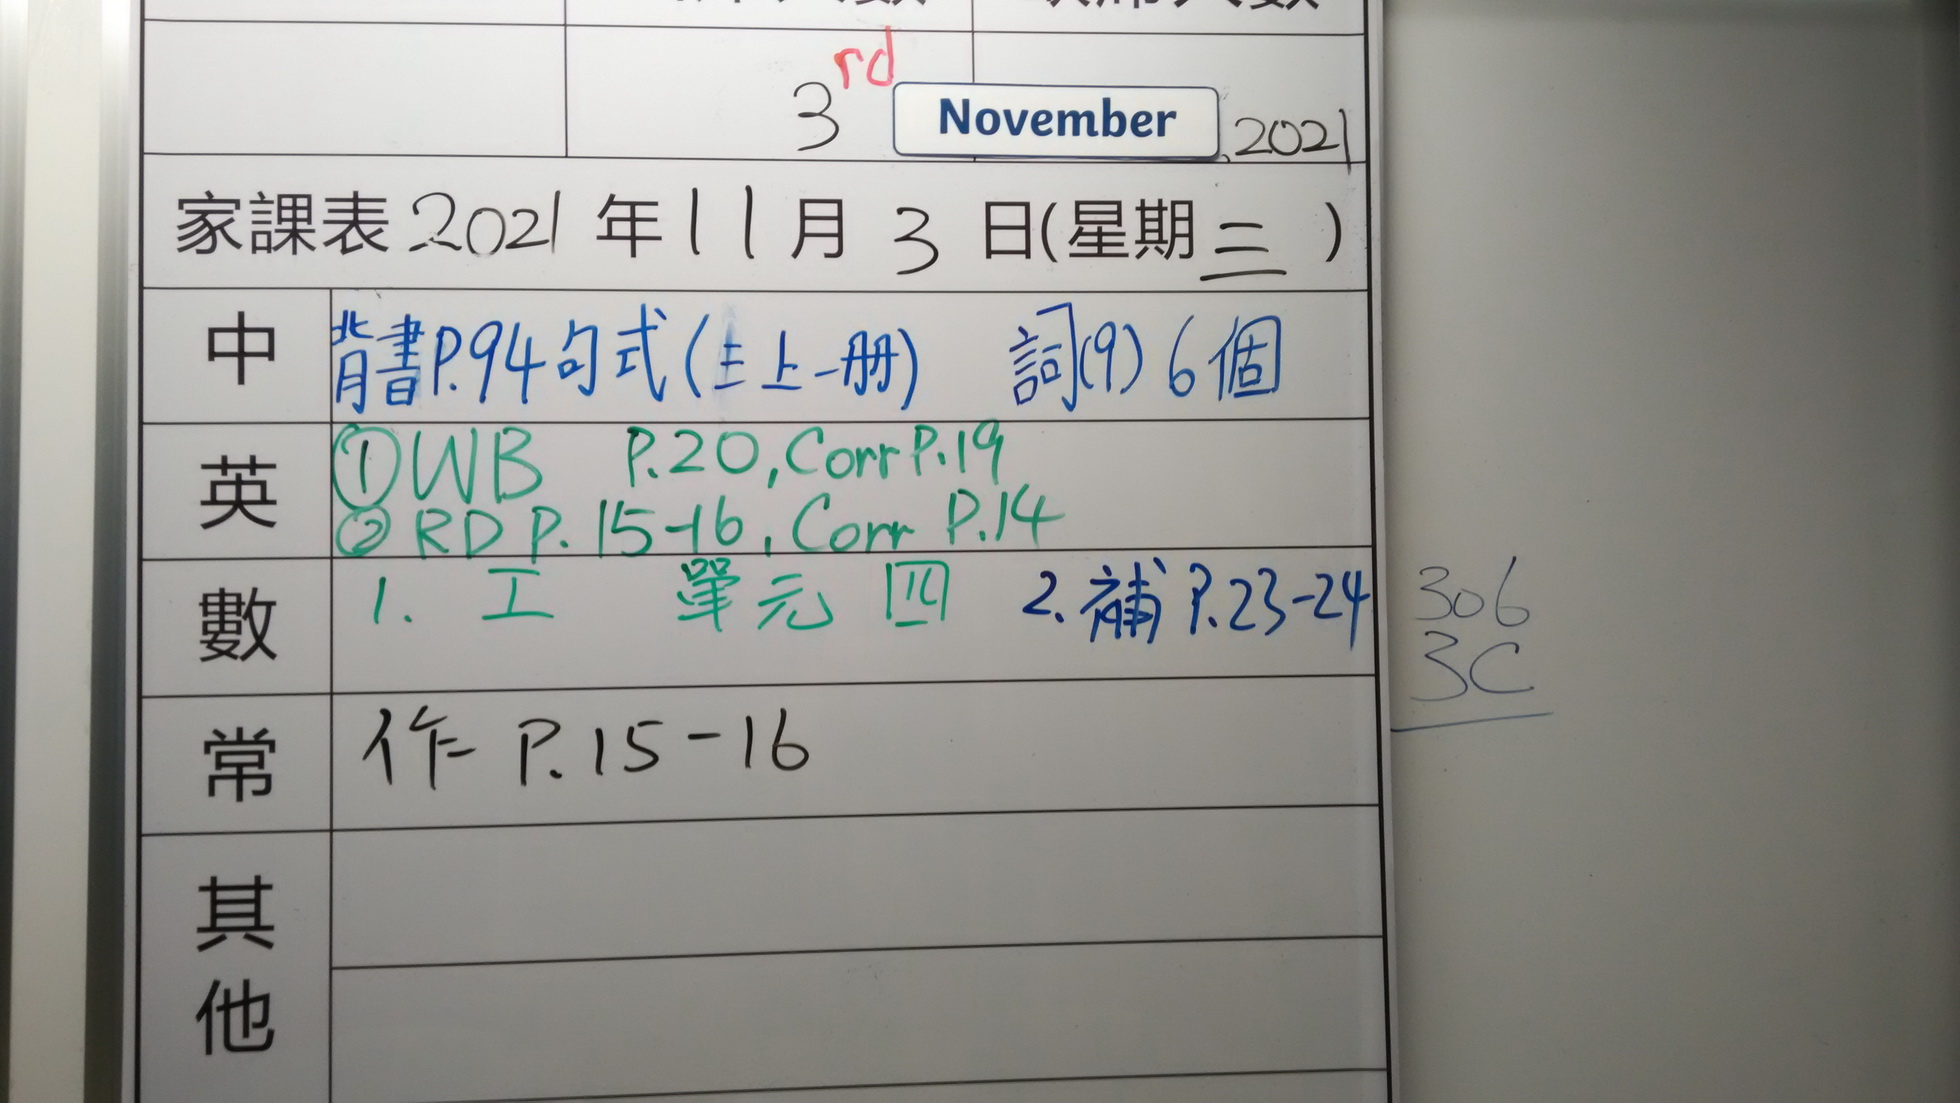 3rd November, 2021
家課表 2021 年 11 月 3 日(星期三)
中 背書P.94句式(三上一册) 詞(9) 6個
英 ①WB P.20, Corr P.19
②RD P.15-16, Corr P.14
數 1. 工 單元 四 2. 補 P.23-24
306
3C
常 作 P.15-16
其他